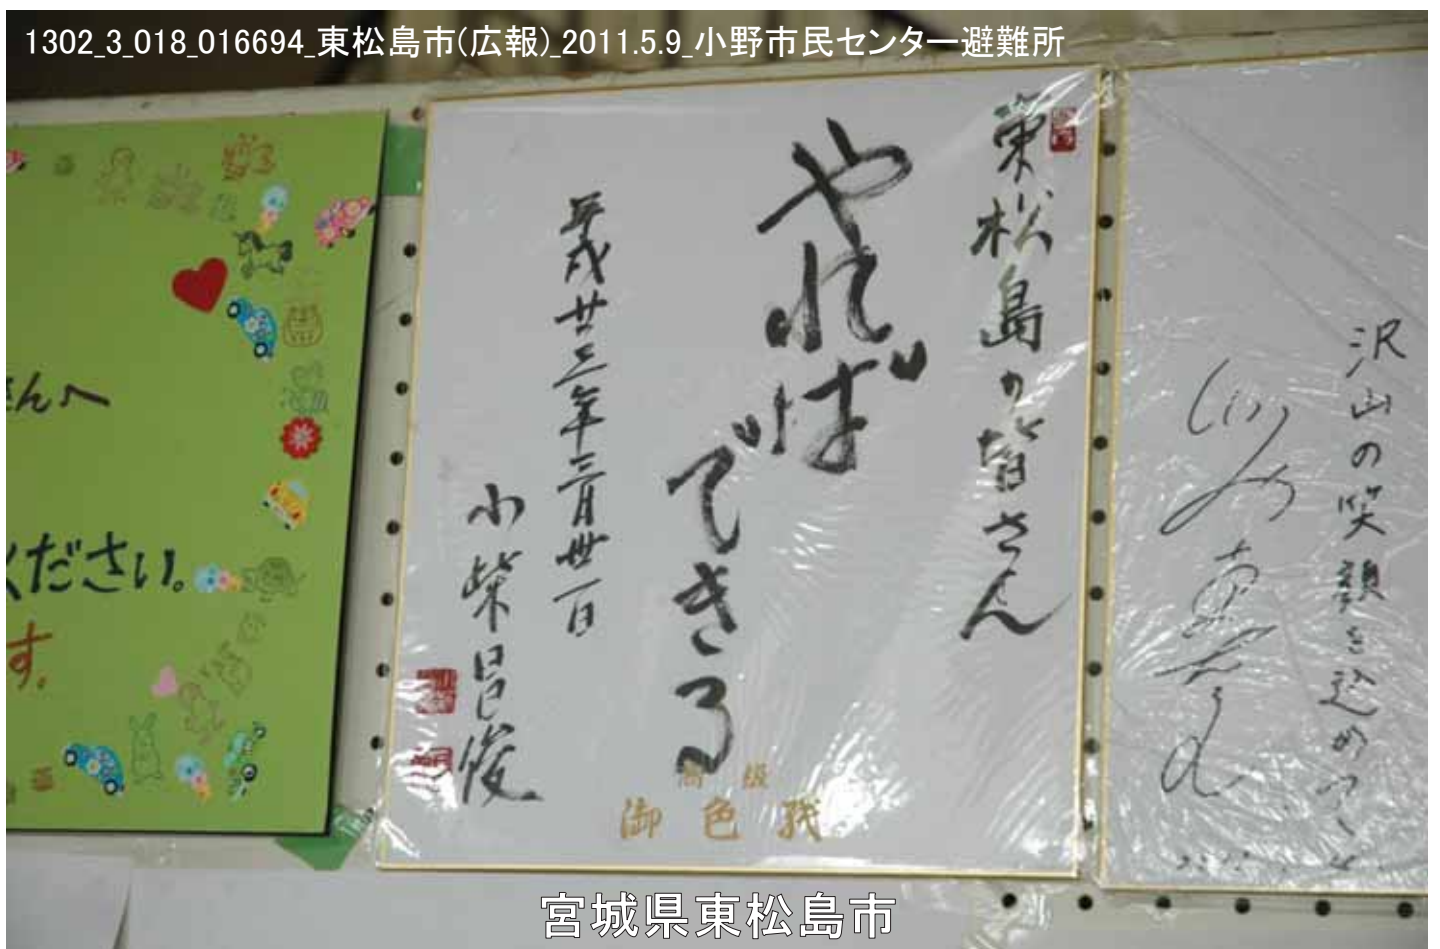 1302_3_018_016694_東松島市(広報)_2011.5.9_小野市民センター避難所
東松島の皆さん
やれば
できる
平成廿三年三月卅一日
小柴昌俊
高級
御色紙
沢山の笑顔を込めて、
さんへ
ください。
す。
宮城県東松島市